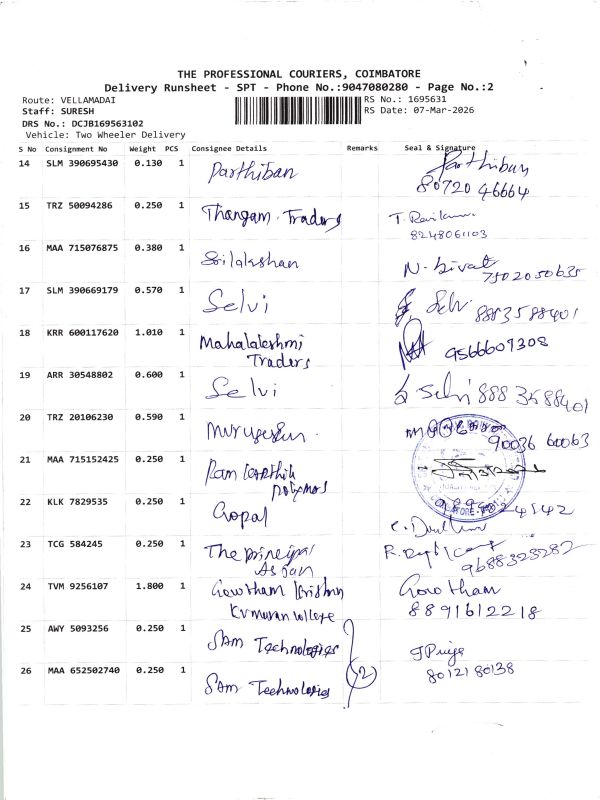 THE PROFESSIONAL COURIERS, COIMBATORE
Delivery Runsheet - SPT - Phone No.:9047080280 - Page No.:2
Route: VELLAMADAI
Staff: SURESH
DRS No.: DCJB169563102
Vehicle: Two Wheeler Delivery
RS No.: 1695631
RS Date: 07-Mar-2026
S No Consignment No Weight PCS Consignee Details Remarks Seal & Signature
14 SLM 390695430 0.130 1 Parthiban Parthiban
80720 46664
15 TRZ 50094286 0.250 1 Thangam. Traders
8248061103
16 MAA 715076875 0.380 1 Srilakshan
7502050635
17 SLM 390669179 0.570 1 Selvi
8883588401
18 KRR 600117620 1.010 1 Mahalakshmi
Traders
9566609308
19 ARR 30548802 0.600 1 Selvi
888 35 88401
20 TRZ 20106230 0.590 1 Murugesan
90036 60063
21 MAA 715152425 0.250 1 Ram Karthik
polymers
22 KLK 7829535 0.250 1 Gopal
23 TCG 584245 0.250 1 The principal
9688323282
24 TVM 9256107 1.800 1 Gowtham Krishna Gowtham
8891612218
25 AWY 5093256 0.250 1 SAM Technologies
26 MAA 652502740 0.250 1 SAM Technologies (2)
8012180138